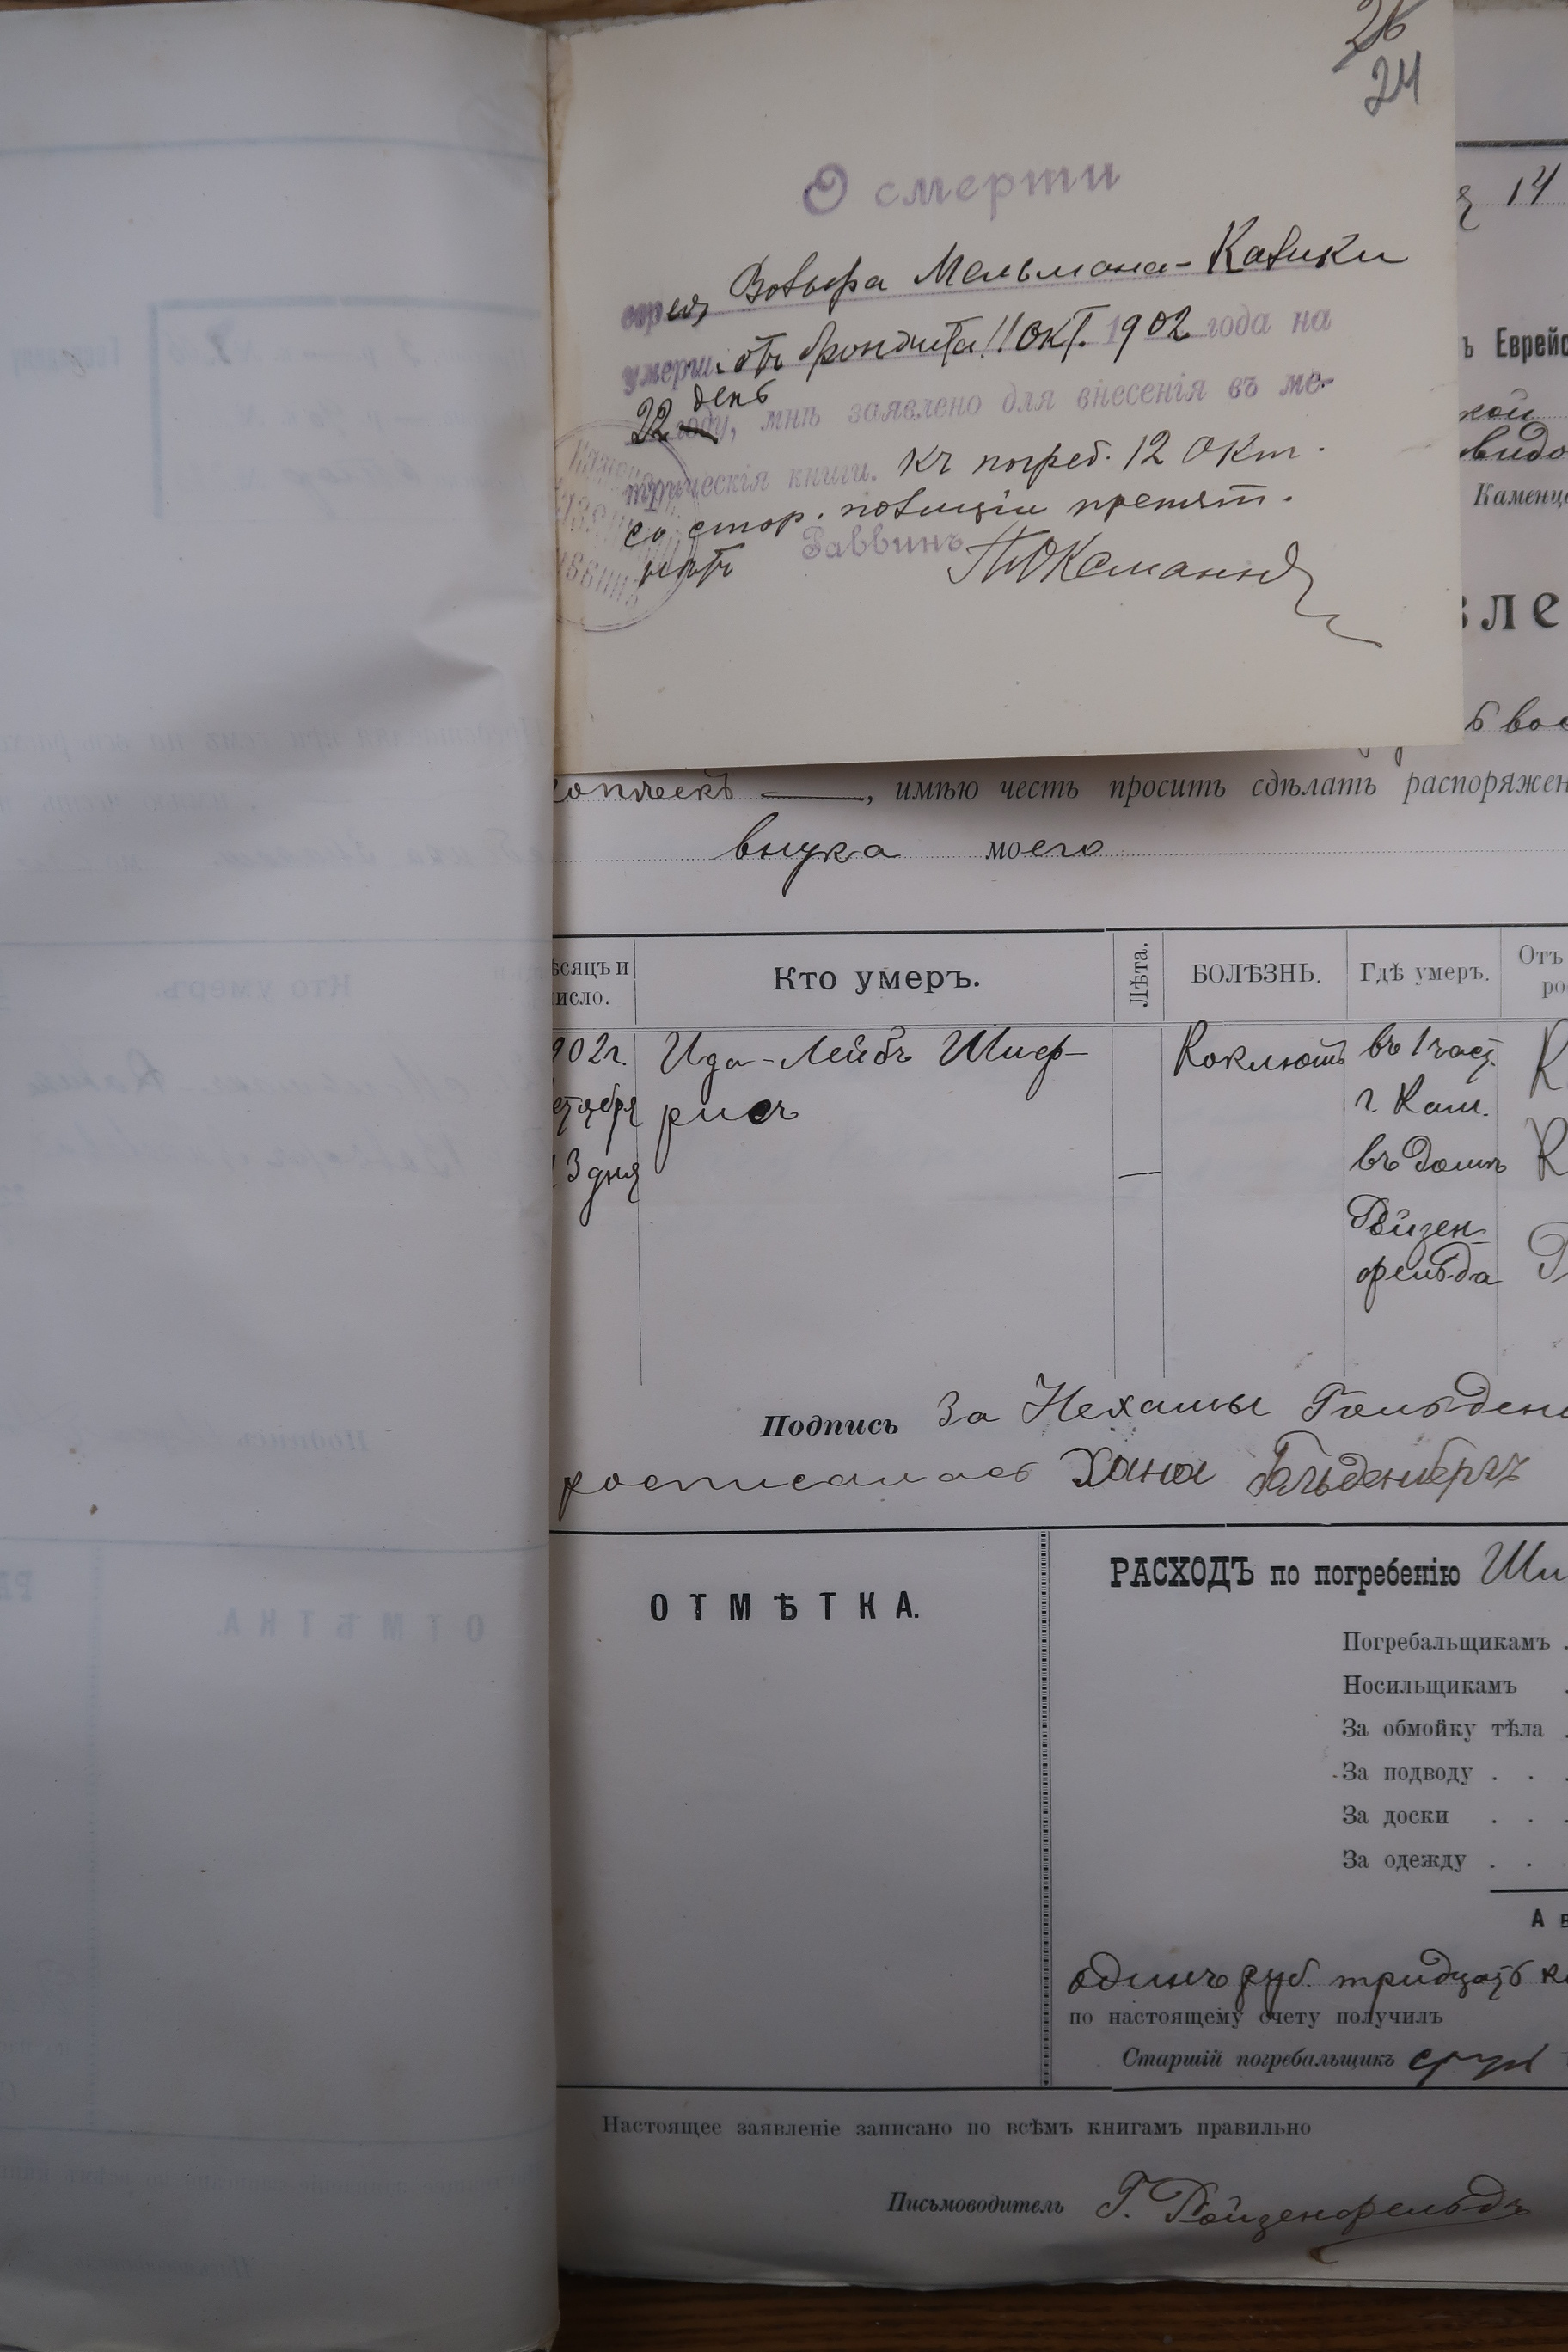 26
24
О смерти
евр. Вольфа Мельмана-Кавики
умерш. отъ бронхита 11 окт. 1902 года на
22 день году, мнѣ заявлено для внесенія въ ме-
трическія книги. Къ погреб. 12 Окт.
со стор. полиціи препят.
нѣтъ Раввинъ
14
ъ Еврейс
кой
видо
Каменце
вле
ь вос
копѣекъ —, имѣю честь просить сдѣлать распоряжен
внука моего
ѣсяцъ и число.
Кто умеръ.
Лѣта.
БОЛѢЗНЬ.
Гдѣ умеръ.
Отъ
ро
902г.
октября
13 дня
Ида-Лейбъ Шиф-
рисъ
—
Коклюшъ
въ 1 част.
г. Кам.
въ домѣ
Ройзен-
фельда
Подпись За Нехамы Гольден
росписалась Хана Гольденбергъ
ОТМѢТКА.
РАСХОДЪ по погребенію Ши
Погребальщикамъ .
Носильщикамъ .
За обмойку тѣла .
За подводу . . .
За доски . . .
За одежду . . .
А в
одинъ руб. тридцать ко
по настоящему счету получилъ
Старшій погребальщикъ
Настоящее заявленіе записано по всѣмъ книгамъ правильно
Письмоводитель Г. Ройзенфельдъ